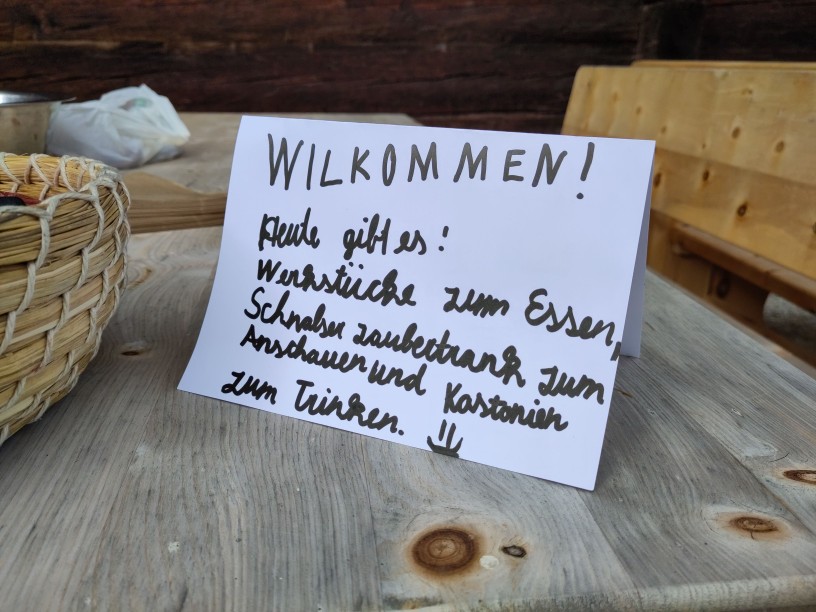 WILKOMMEN!
Heute gibt es:
Werkstücke zum Essen,
Schnabu zaubertrank zum
Anschauen und Kastanien
zum Trinken.